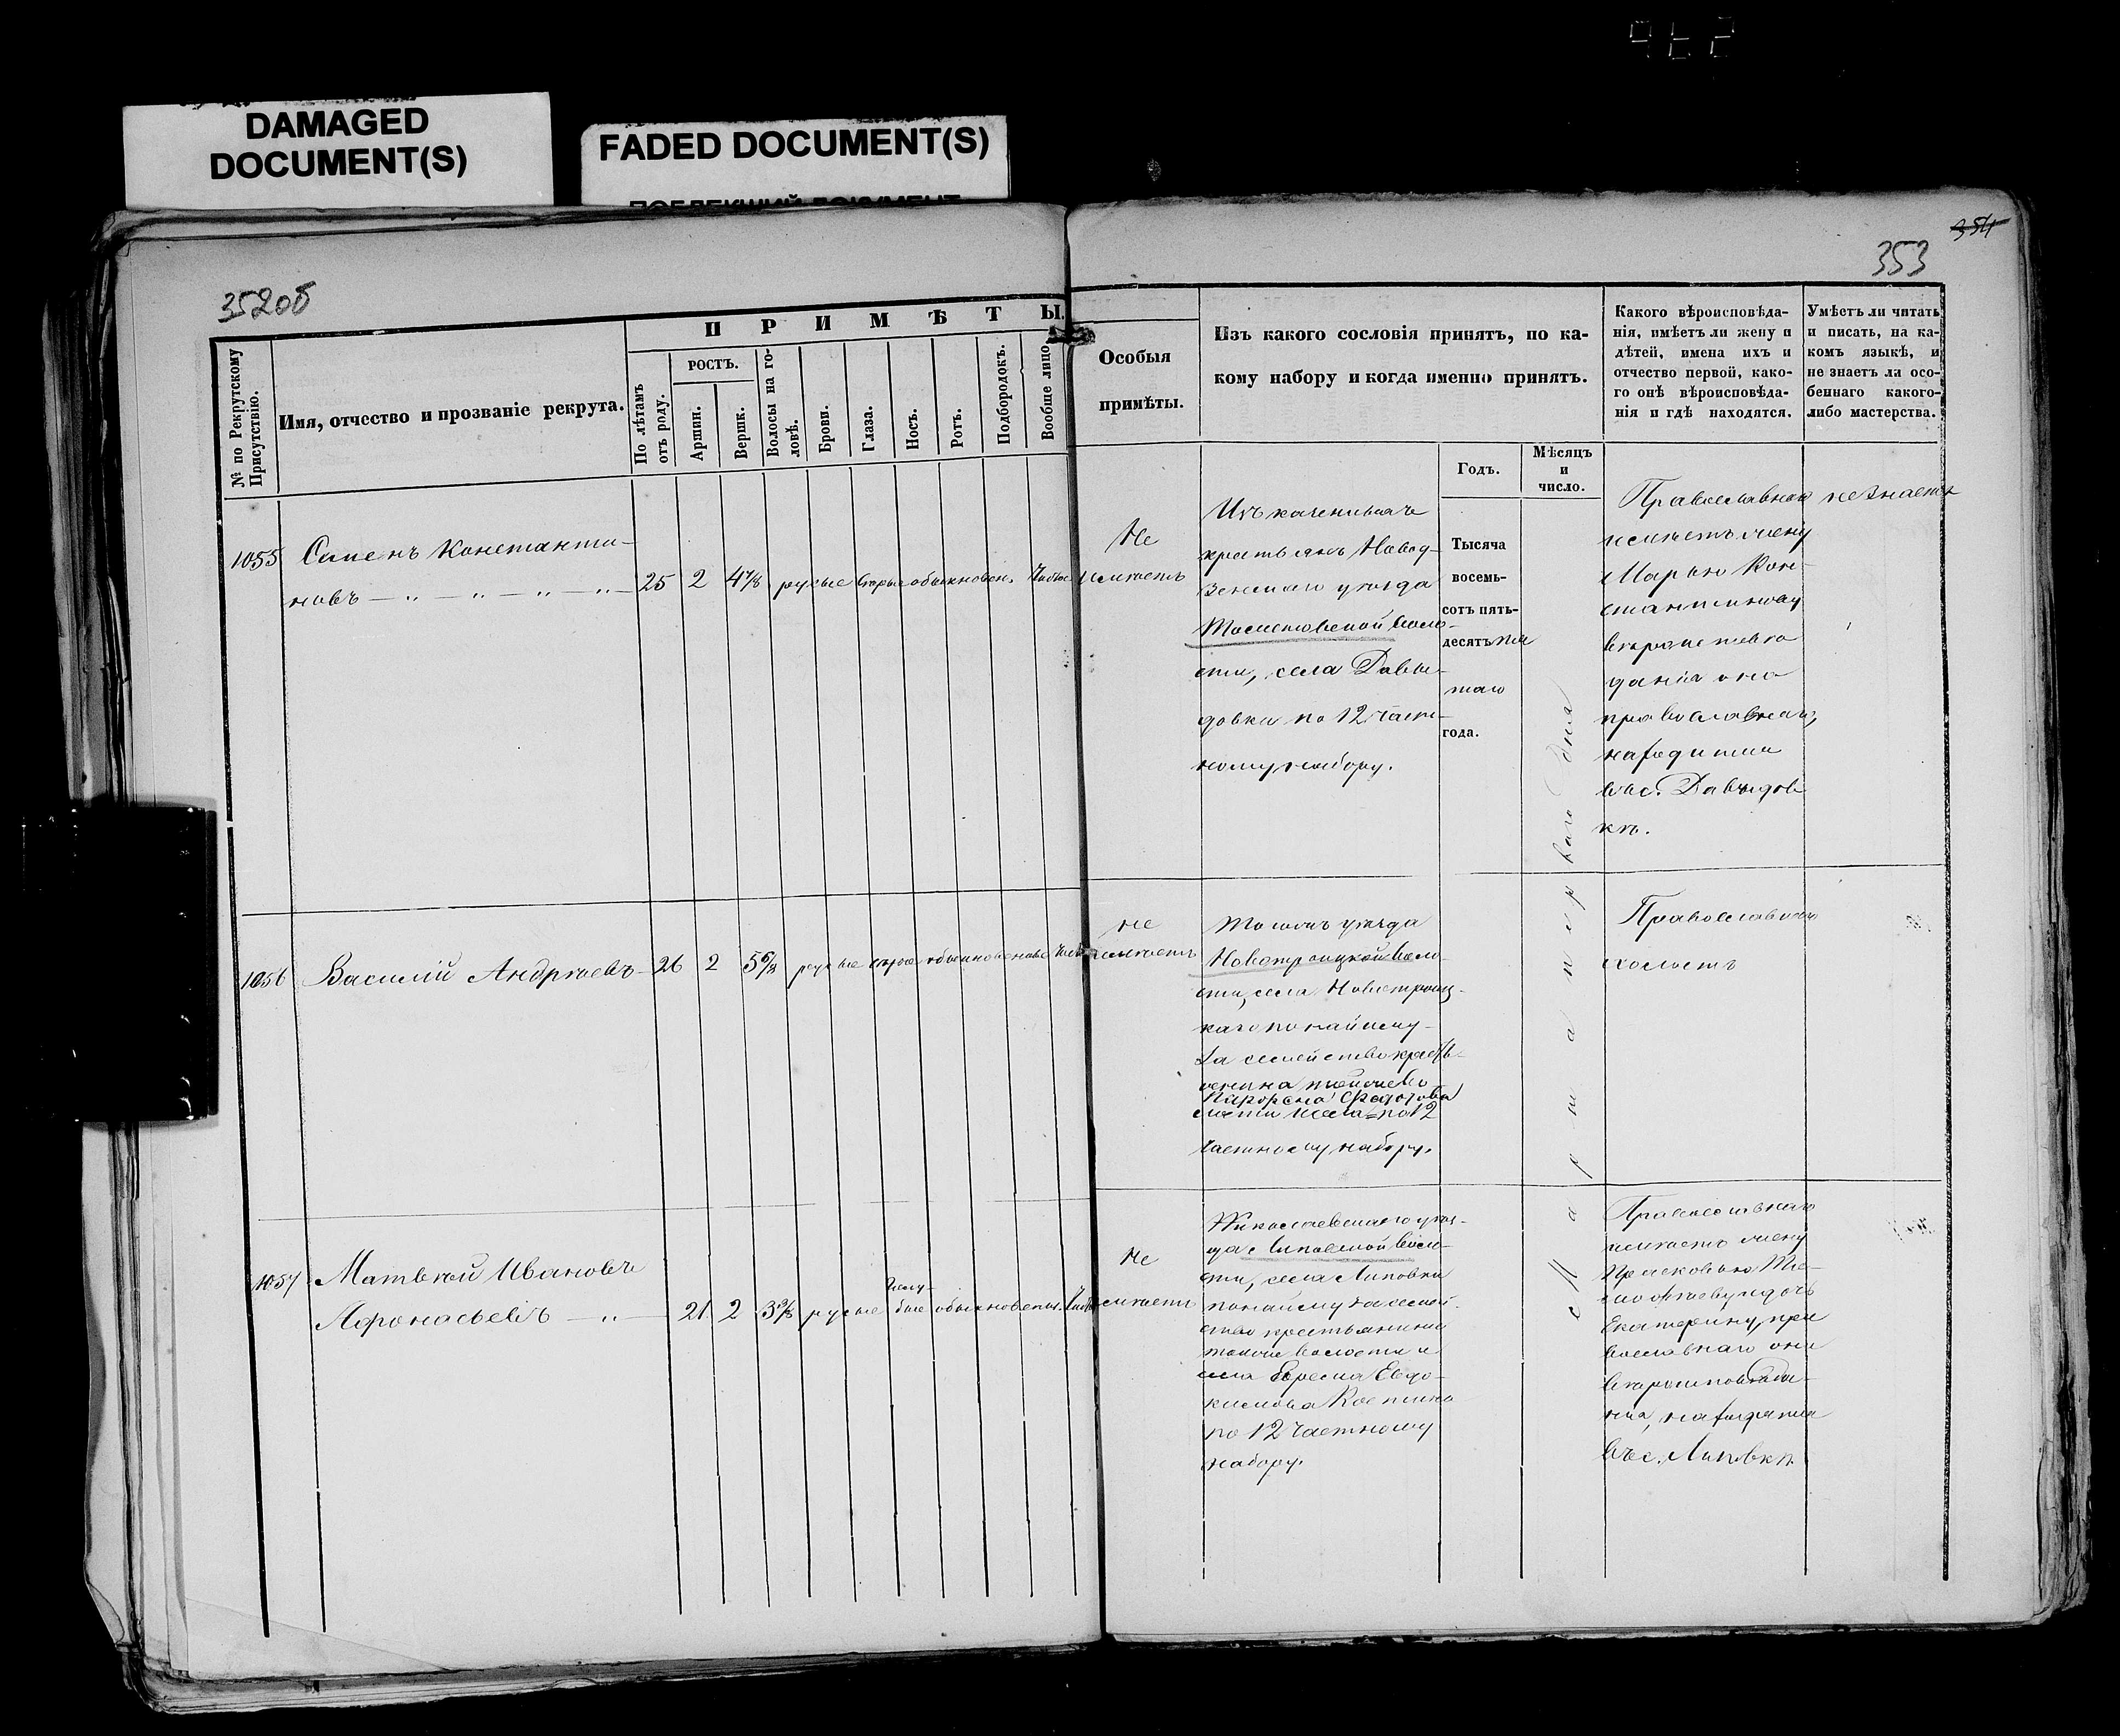 DAMAGED
DOCUMENT(S)
FADED DOCUMENT(S)
354
353
352об
№ по Рекрутскому
Присутствію.
Имя, отчество и прозваніе рекрута.
П Р И М Ѣ Т Ы.
По лѣтамъ
отъ роду.
РОСТЪ.
Аршин.
Вершк.
Волосы на го-
ловѣ.
Брови.
Глаза.
Носъ.
Ротъ.
Подбородокъ.
Вообще лицо
Особыя
примѣты.
Изъ какого сословія принятъ, по ка-
кому набору и когда именно принятъ.
Годъ.
Мѣсяцъ
и
число.
Какого вѣроисповѣда-
нія, имѣетъ ли жену и
дѣтей, имена ихъ и
отчество первой, како-
го онѣ вѣроисповѣда-
нія и гдѣ находятся.
Умѣетъ ли читать
и писать, на ка-
комъ языкѣ, и
не знаетъ ли осо-
беннаго какого-
либо мастерства.
1055
Семенъ Константи-
новъ — „ — „ — „ — „ —
25 2 4 7/8 русые сѣрые обыкновен. чистое
Не
имѣетъ
крестьянъ Новоу-
зенскаго уѣзда
волo-
сти, села Давы-
довки по 12 част-
ному набору.
Тысяча
восемь-
сотъ пять-
десятъ пя
таго
года.
Марта перваго дня
Православнаго
имѣетъ жену
Марью Кон-
стантинову
вѣроисповѣ
данія она
православнаго,
находится
въ с. Давыдов
кѣ.
не знаетъ
1056
Василій Андреевъ — 26 2 5 6/8 русые сѣрые обыкновенные чист
не
имѣетъ
Того жъ уѣзда
Новотроицкой воло-
сти, села Новотроиц-
каго по найму
за семейство крестья-
нина
Федотова
по 12
частному набору.
Православнаго
холостъ
1057
Матвѣй Ивановъ
Афонасьевъ — „ — 21 2 3 3/8 русые голу-
бые обыкновенн. чист
Не
имѣетъ
Николаевскаго уѣз-
да Липовской воло-
сти, села Липовки
по найму за семей-
ство крестьянина
той же волости и
села Ефрема Евдо-
кимова Костина
по 12 частному
набору.
Православнаго
имѣетъ жену
Прасковью Ти-
мофѣеву и дочь
Екатерину, пра
вославнаго они
вѣроисповѣда-
нія, находятся
въ с. Липовкѣ.